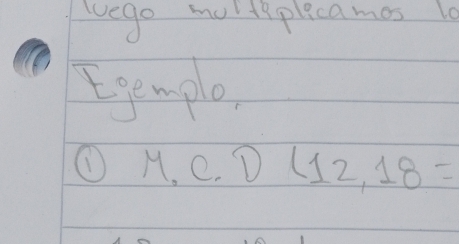 luego multiplicamos lo
Egemplo.
① M.C.D (12,18 =